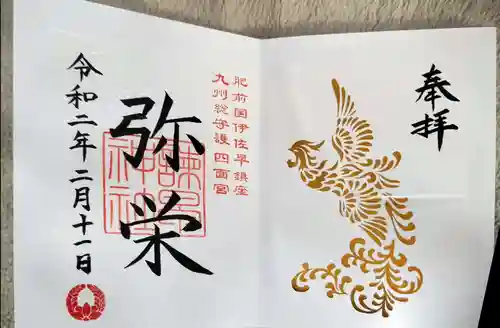 奉拝
肥前国伊佐早鎮座
九州総守護四面宮
弥栄
諫早神社
令和二年二月十一日